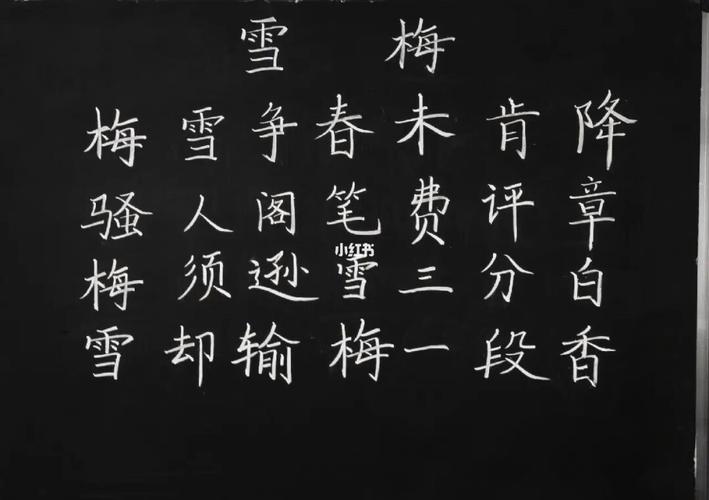 雪 梅
梅雪争春未肯降
骚人阁笔费评章
小红书
梅须逊雪三分白
雪却输梅一段香